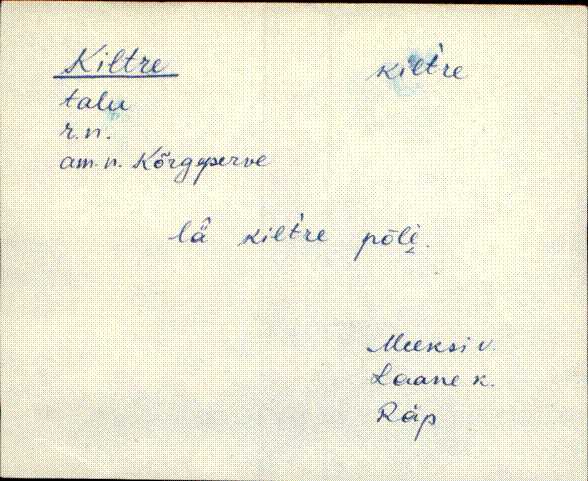 Kiltre kil't're
talu
r.n.
am.n. Kõrgeperve
lǟ kil't're põli̬.
Meeksi v.
Laane k.
Räp